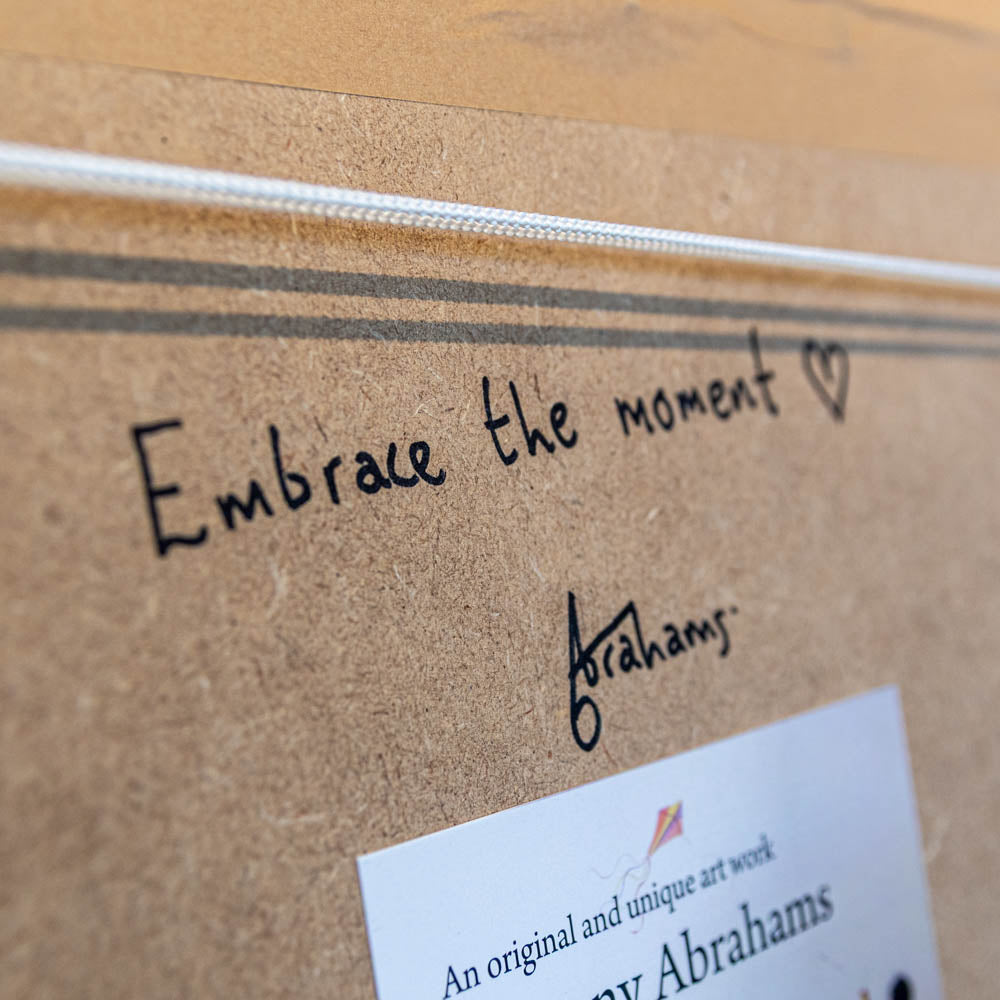 Embrace the moment ♡
Abrahams.
An original and unique art work
Abrahams